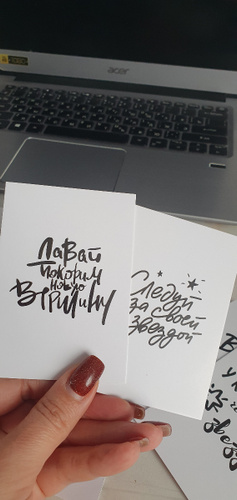 acer
Давай
покорим
новую
вершину
Следуй
за своей
звездой